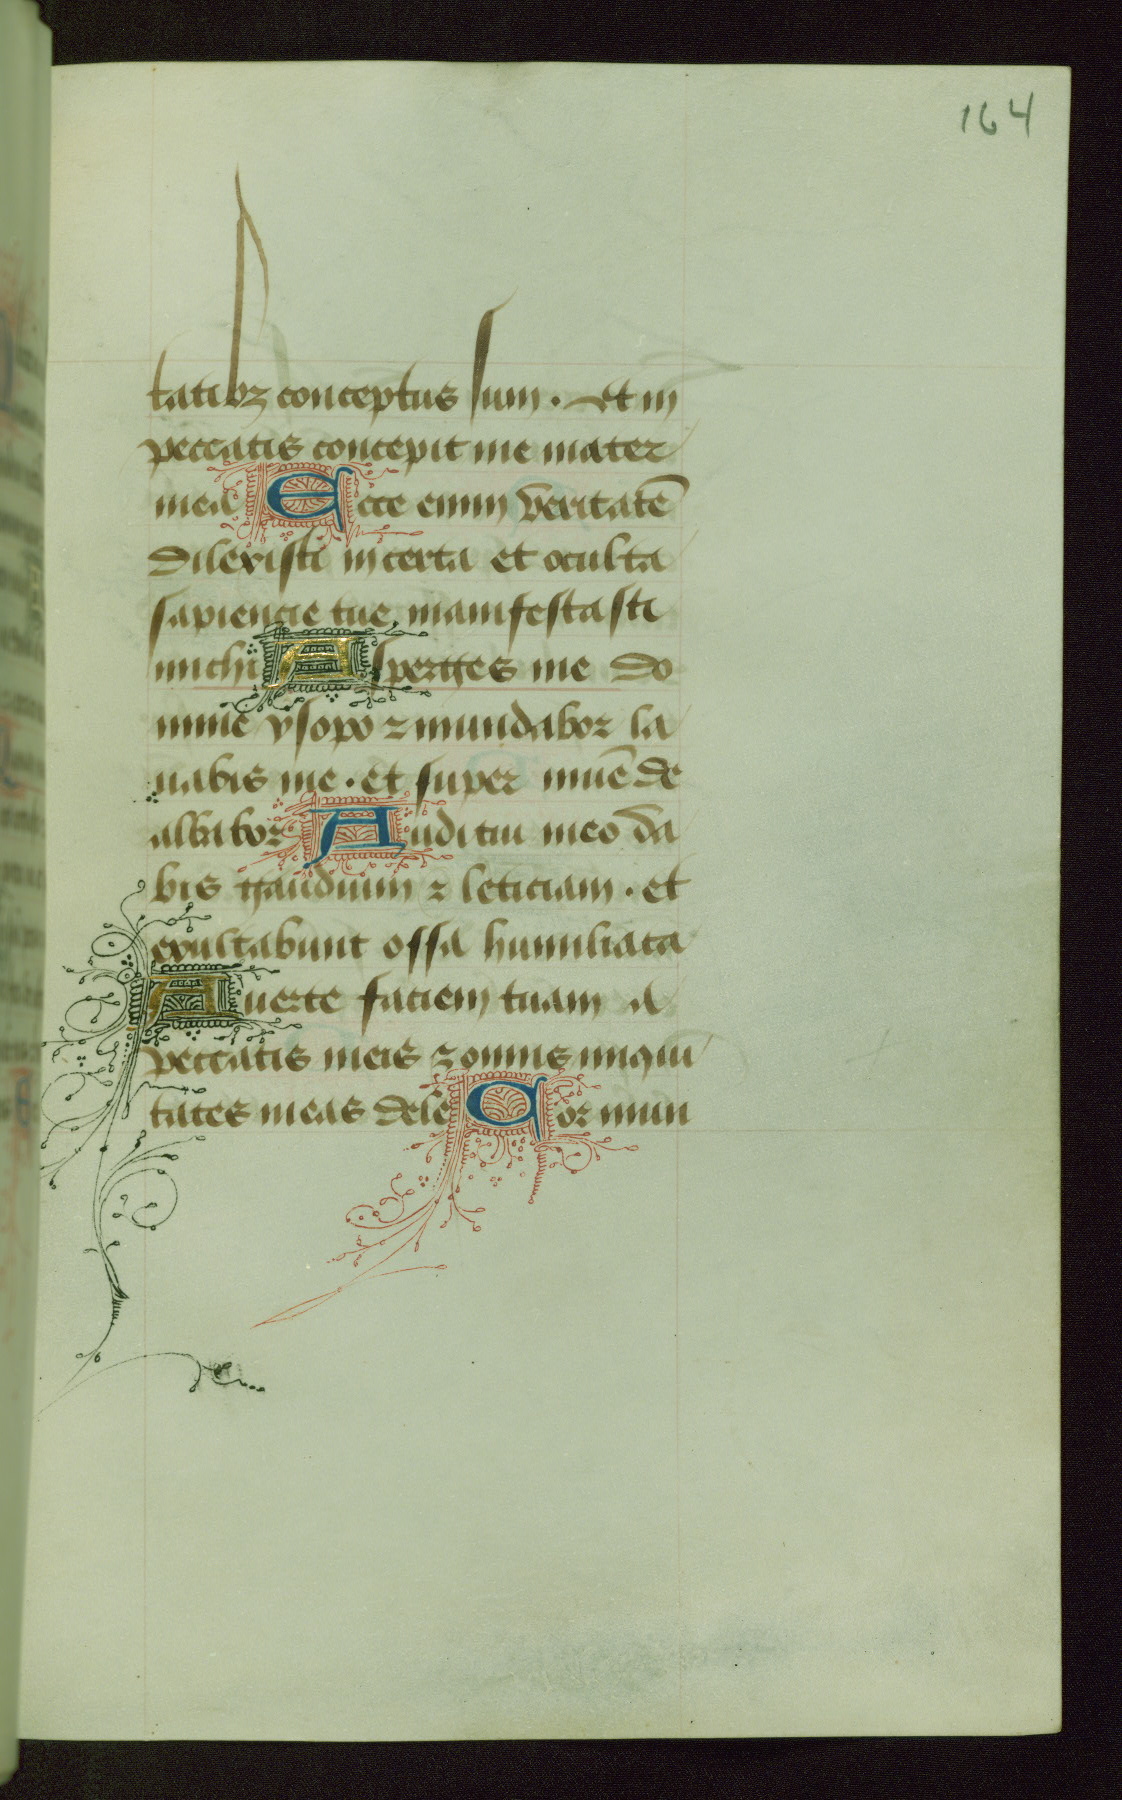 164
tatibꝫ conceptus sum . Et in
peccatis concepit me mater
mea Ecce enim veritatē
dilexisti incerta et oculta
sapiencie tue manifestasti
michi Asperges me do
mine ysopo ⁊ mundabor la
uabis me . et super niuē de
albabor Auditui meo da
bis gaudium ⁊ leticiam . et
exultabunt ossa humiliata
Auerte faciem tuam a
peccatis meis ⁊ omnes iniqui
tates meas dele Cor mun